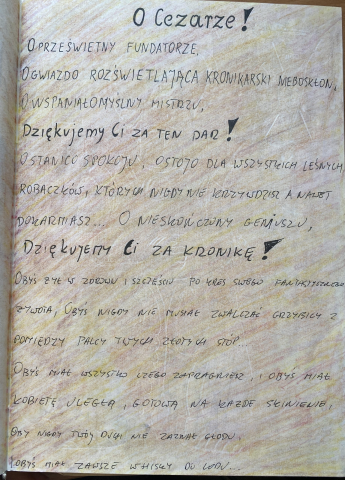 O CEZARZE!
O PRZEŚWIETNY FUNDATORZE,
O GWIAZDO ROZŚWIETLAJĄCA KRONIKARSKI NIEBOSKŁON,
O WSPANIAŁOMYŚLNY MISTRZU,
DZIĘKUJEMY CI ZA TEN DAR!
OSTANICO SPOKOJU, OSTOJO DLA WSZYSTKICH LEŚNYCH
ROBACZKÓW, KTÓRYCH NIGDY NIE KRZYWDZISZ A NAWET
DOKARMIASZ... O NIESKOŃCZONY GENIUSZU,
DZIĘKUJEMY CI ZA KRONIKĘ!
OBYŚ ŻYŁ W ZDROWIU I SZCZĘŚCIU PO KRES SWEGO FANTASTYCZNEGO
ŻYWOTA, OBYŚ NIGDY NIE MUSIAŁ ZWALCZAĆ GRZYBICY Z
POMIĘDZY PALCY TWYCH ZŁOTYCH STÓP...
OBYŚ MIAŁ WSZYSTKO CZEGO ZAPRAGNIESZ, I OBYŚ MIAŁ
KOBIETĘ ULEGŁĄ, GOTOWĄ NA KAŻDE SKINIENIE,
OBY NIGDY TWÓJ DUCH NIE ZAZNAŁ GŁODU,
I OBYŚ MIAŁ ZAWSZE WHISKY DO LODU...